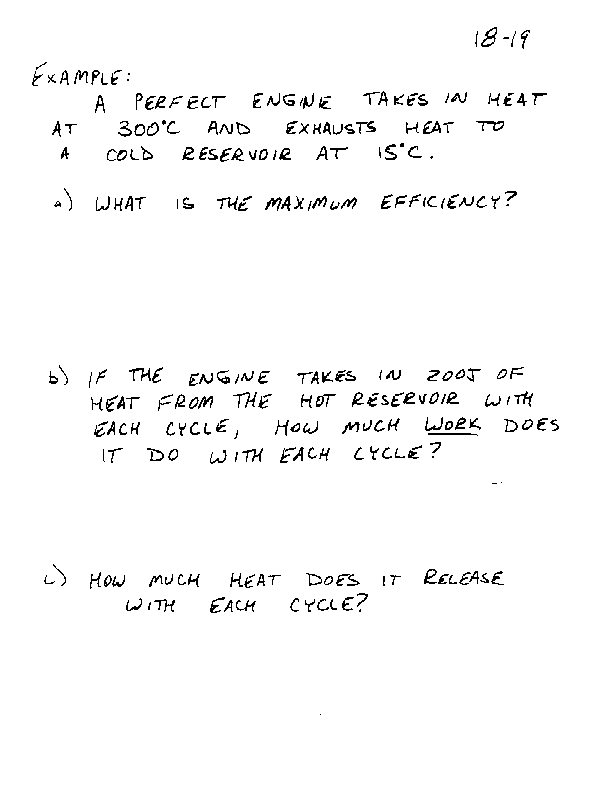 18-19
EXAMPLE:
A PERFECT ENGINE TAKES IN HEAT
AT 300°C AND EXHAUSTS HEAT TO
A COLD RESERVOIR AT 15°C.
a) WHAT IS THE MAXIMUM EFFICIENCY?
b) IF THE ENGINE TAKES IN 200J OF
HEAT FROM THE HOT RESERVOIR WITH
EACH CYCLE, HOW MUCH WORK DOES
IT DO WITH EACH CYCLE?
c) HOW MUCH HEAT DOES IT RELEASE
WITH EACH CYCLE?